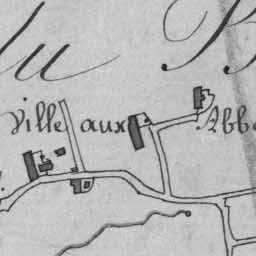 du B
Ville aux Abb